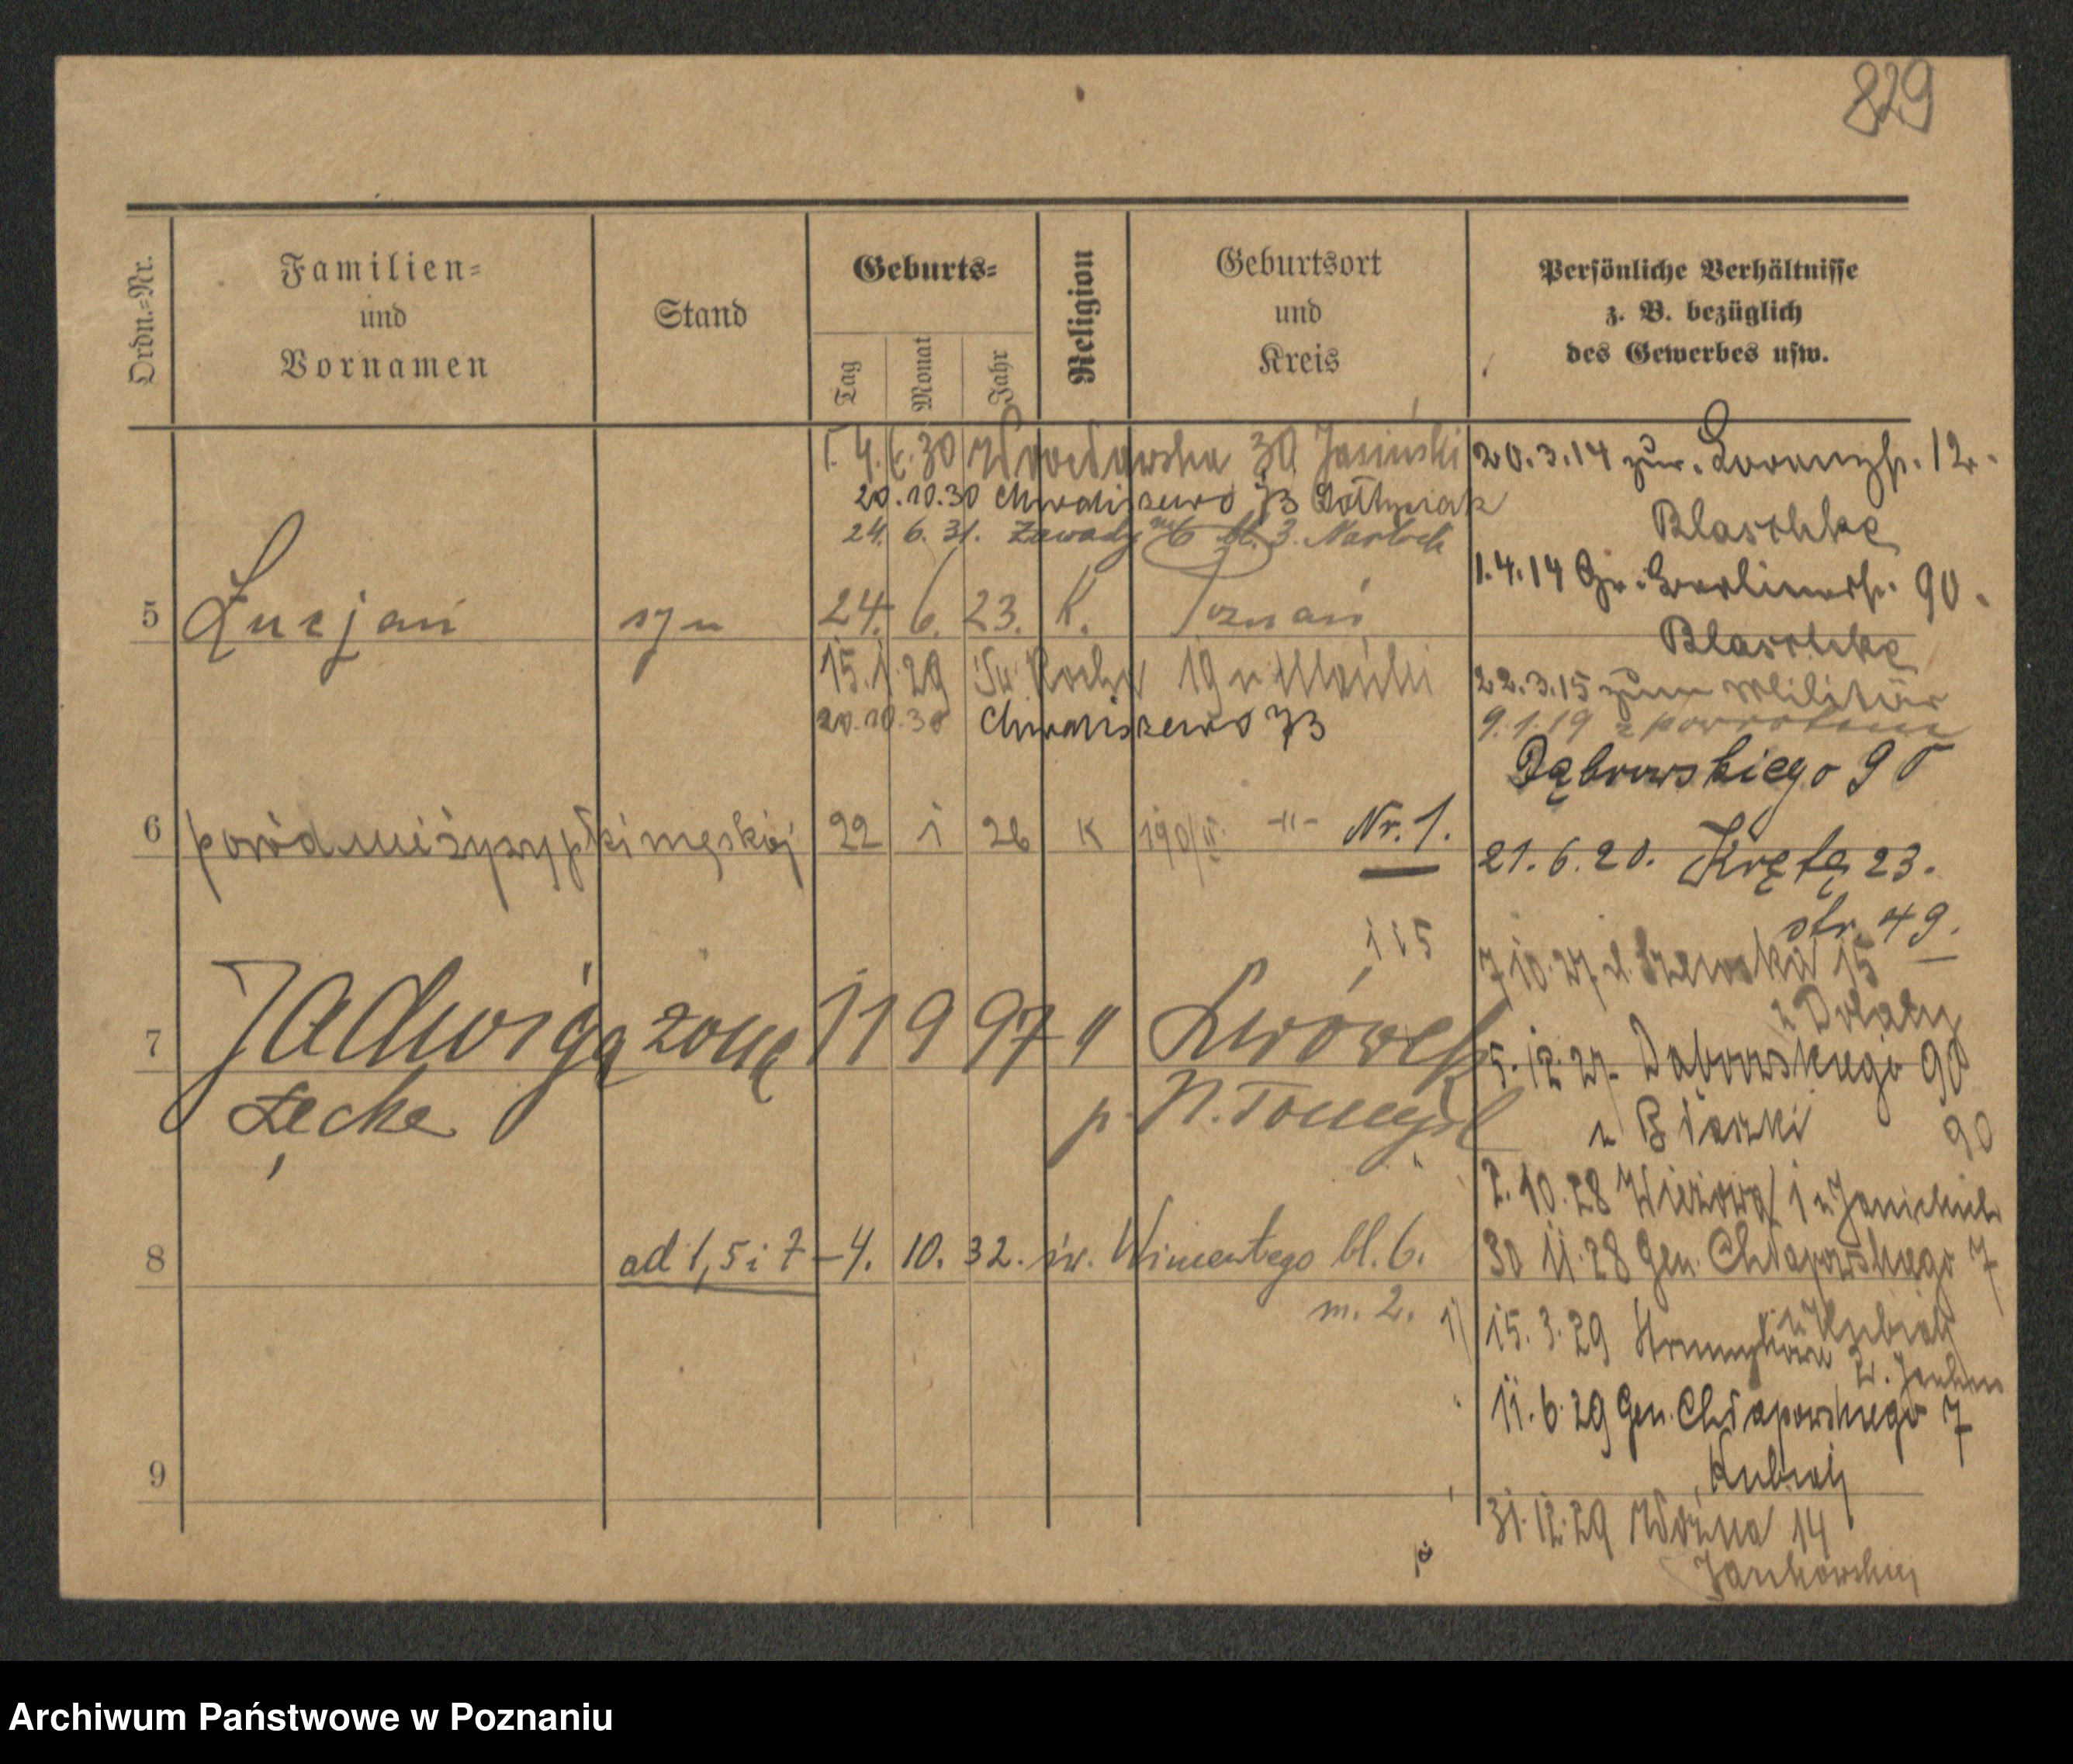 829
Ordn.=Nr.
Familien=
und
Vornamen
Stand
Geburts=
Tag
Monat
Jahr
Religion
Geburtsort
und
Kreis
Persönliche Verhältnisse
z. B. bezüglich
des Gewerbes usw.
30 Jasiński
20.10.30 Chwaliszewo 73
24. 6. 31. Zawady bl. 3.
5 Lucjan syn 24. 6. 23. K. Poznań
15.1.29 Św. Rocha 19
20.10.30 Chwaliszewo 73
6 poród nieżywy płci męskiej 22 1 26 K -"- Nr. 1.
115
7 Jadwiga żona 11 9 97 " Lwówek
Łęcka p. N. Tomyśl
8 ad 1, 5 i 7 – 4. 10. 32. św. Wincentego bl. 6.
m. 2.
9
20.3.14 zur. 12.
Blaschke
1.4.14 Gr. Berlinerstr. 90.
Blaschke
22.3.15 zum Militär
9.1.19 z powrotem
Dąbrowskiego 90
21.6.20. Kręta 23.
str. 49.
7 10.27 Szewska 15
5.12.27 Dąbrowskiego 90
90
2.10.28 Wieżowa 1
30 11.28 Gen. Chłapowskiego 7
u Kubiak
1) 15.3.29
11.6.29 Gen. Chłapowskiego 7
Kubiak
31.12.29 Woźna 14
Jankowskiej
Archiwum Państwowe w Poznaniu